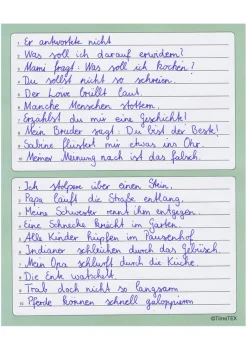 1. Er antwortete nicht
2. Was soll ich darauf erwidern?
3. Mami fragt: Was soll ich kochen?
4. Du sollst nicht so schreien.
5. Der Löwe brüllt laut.
6. Manche Menschen stottern.
7. Erzählst du mir eine Geschichte!
8. Mein Bruder sagt: Du bist der Beste!
9. Sabine flüstert mir etwas ins Ohr.
10. Meiner Meinung nach ist das falsch.
1. Ich stolpere über einen Stein.
2. Papa läuft die Straße entlang.
3. Meine Schwester rennt ihm entgegen.
4. Eine Schnecke kriecht im Garten.
5. Alle Kinder hüpfen im Pausenhof
6. Indianer schleichen durch das Gebüsch.
7. Mein Opa schlurft durch die Küche.
8. Die Ente watschelt.
9. Trab doch nicht so langsam
10. Pferde können schnell galoppieren
©TimeTEX